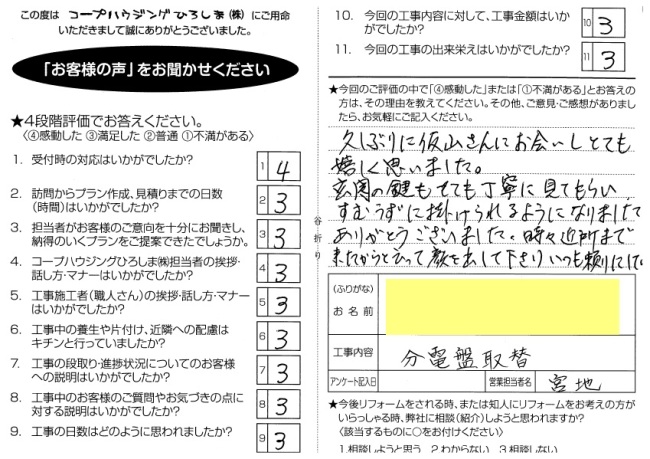 この度は コープハウジングひろしま(株) にご用命
いただきまして誠にありがとうございました。
「お客様の声」をお聞かせください
★4段階評価でお答えください。
〈④感動した ③満足した ②普通 ①不満がある〉
1. 受付時の対応はいかがでしたか?
1 4
2. 訪問からプラン作成、見積りまでの日数
(時間)はいかがでしたか?
2 3
3. 担当者がお客様のご意向を十分にお聞きし、
納得のいくプランをご提案できたでしょうか。
3 3
4. コープハウジングひろしま㈱担当者の挨拶・
話し方・マナーはいかがでしたか?
4 3
5. 工事施工者(職人さん)の挨拶・話し方・マナー
はいかがでしたか?
5 3
6. 工事中の養生や片付け、近隣への配慮は
キチンと行っていましたか?
6 3
7. 工事の段取り・進捗状況についてのお客様
への説明はいかがでしたか?
7 3
8. 工事中のお客様のご質問やお気づきの点に
対する説明はいかがでしたか?
8 3
9. 工事の日数はどのように思われましたか?
9 3
谷折り
10. 今回の工事内容に対して、工事金額はいか
がでしたか?
10 3
11. 今回の工事の出来栄えはいかがでしたか?
11 3
★今回のご評価の中で「④感動した」または「①不満がある」とお答えの
方は、その理由を教えてください。その他、ご意見・ご感想がありまし
たら、お気軽にご記入ください。
久しぶりに仮山さんにお会いしとても
嬉しく思いました。
玄関の鍵もとても丁寧に見てもらい
すむうずに掛けられるようになりまして
ありがとうございました。時々近所まで
来たからといって顔を出して下さり いつも頼りにして
(ふりがな)
お名前
工事内容
分電盤取替
アンケート記入日
営業担当者名
宮地
★今後リフォームをされる時、または知人にリフォームをお考えの方が
いらっしゃる時、弊社に相談(紹介)しようと思われますか?
〈該当するものに○をお付けください〉
1.相談しようと思う 2.わからない 3.相談しない